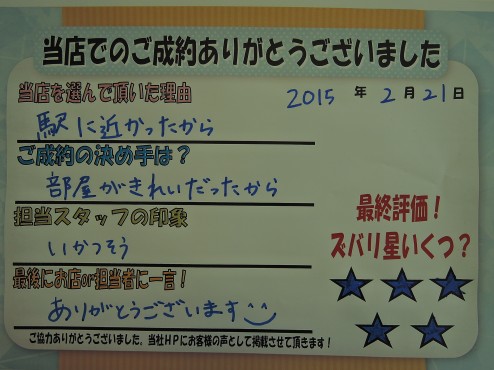 当店でのご成約ありがとうございました
当店を選んで頂いた理由
2015年2月21日
駅に近かったから
ご成約の決め手は？
部屋がきれいだったから
担当スタッフの印象
いかつそう
最終評価！
ズバリ星いくつ？
最後にお店or担当者に一言！
ありがとうございます
ご協力ありがとうございました。当社HPにお客様の声として掲載させて頂きます！